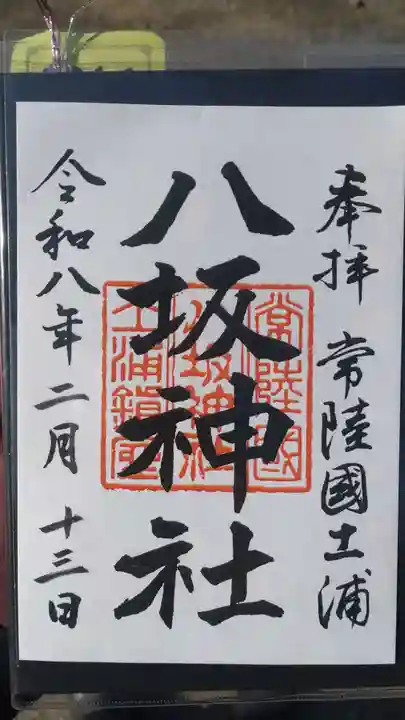 奉拝 常陸國土浦
八坂神社
常陸國
八坂神社
土浦鎮座
令和八年二月十三日